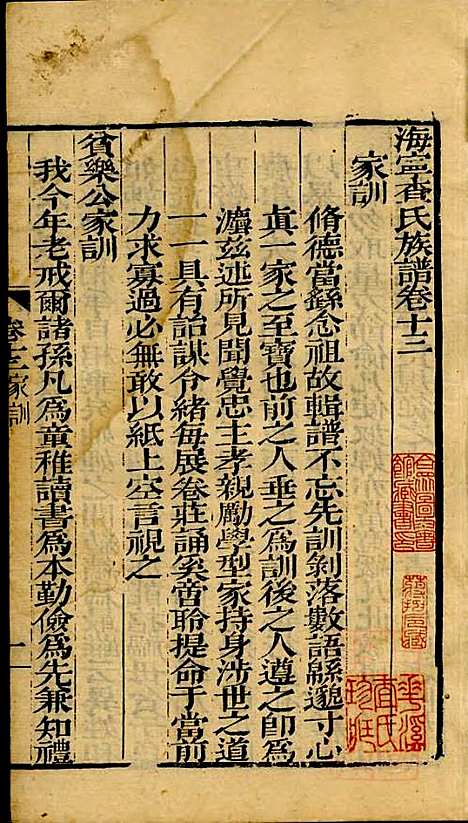 海寧查氏族譜卷十三
家訓
脩德當繇念祖故輯譜不忘先訓剝落數語緜邈寸心
眞一家之至寶也前之人垂之為訓後之人遵之卽為
灋兹述所見聞覺忠主孝親勵學型家持身涉世之道
一一具有詒謀令緒每展卷莊誦奚啻聆提命于當前
力求寡過必無敢以紙上空言視之
貧樂公家訓
我今年老戒爾諸孫凡為童稚讀書為本勤儉為先兼知禮
卷十三 家訓
一